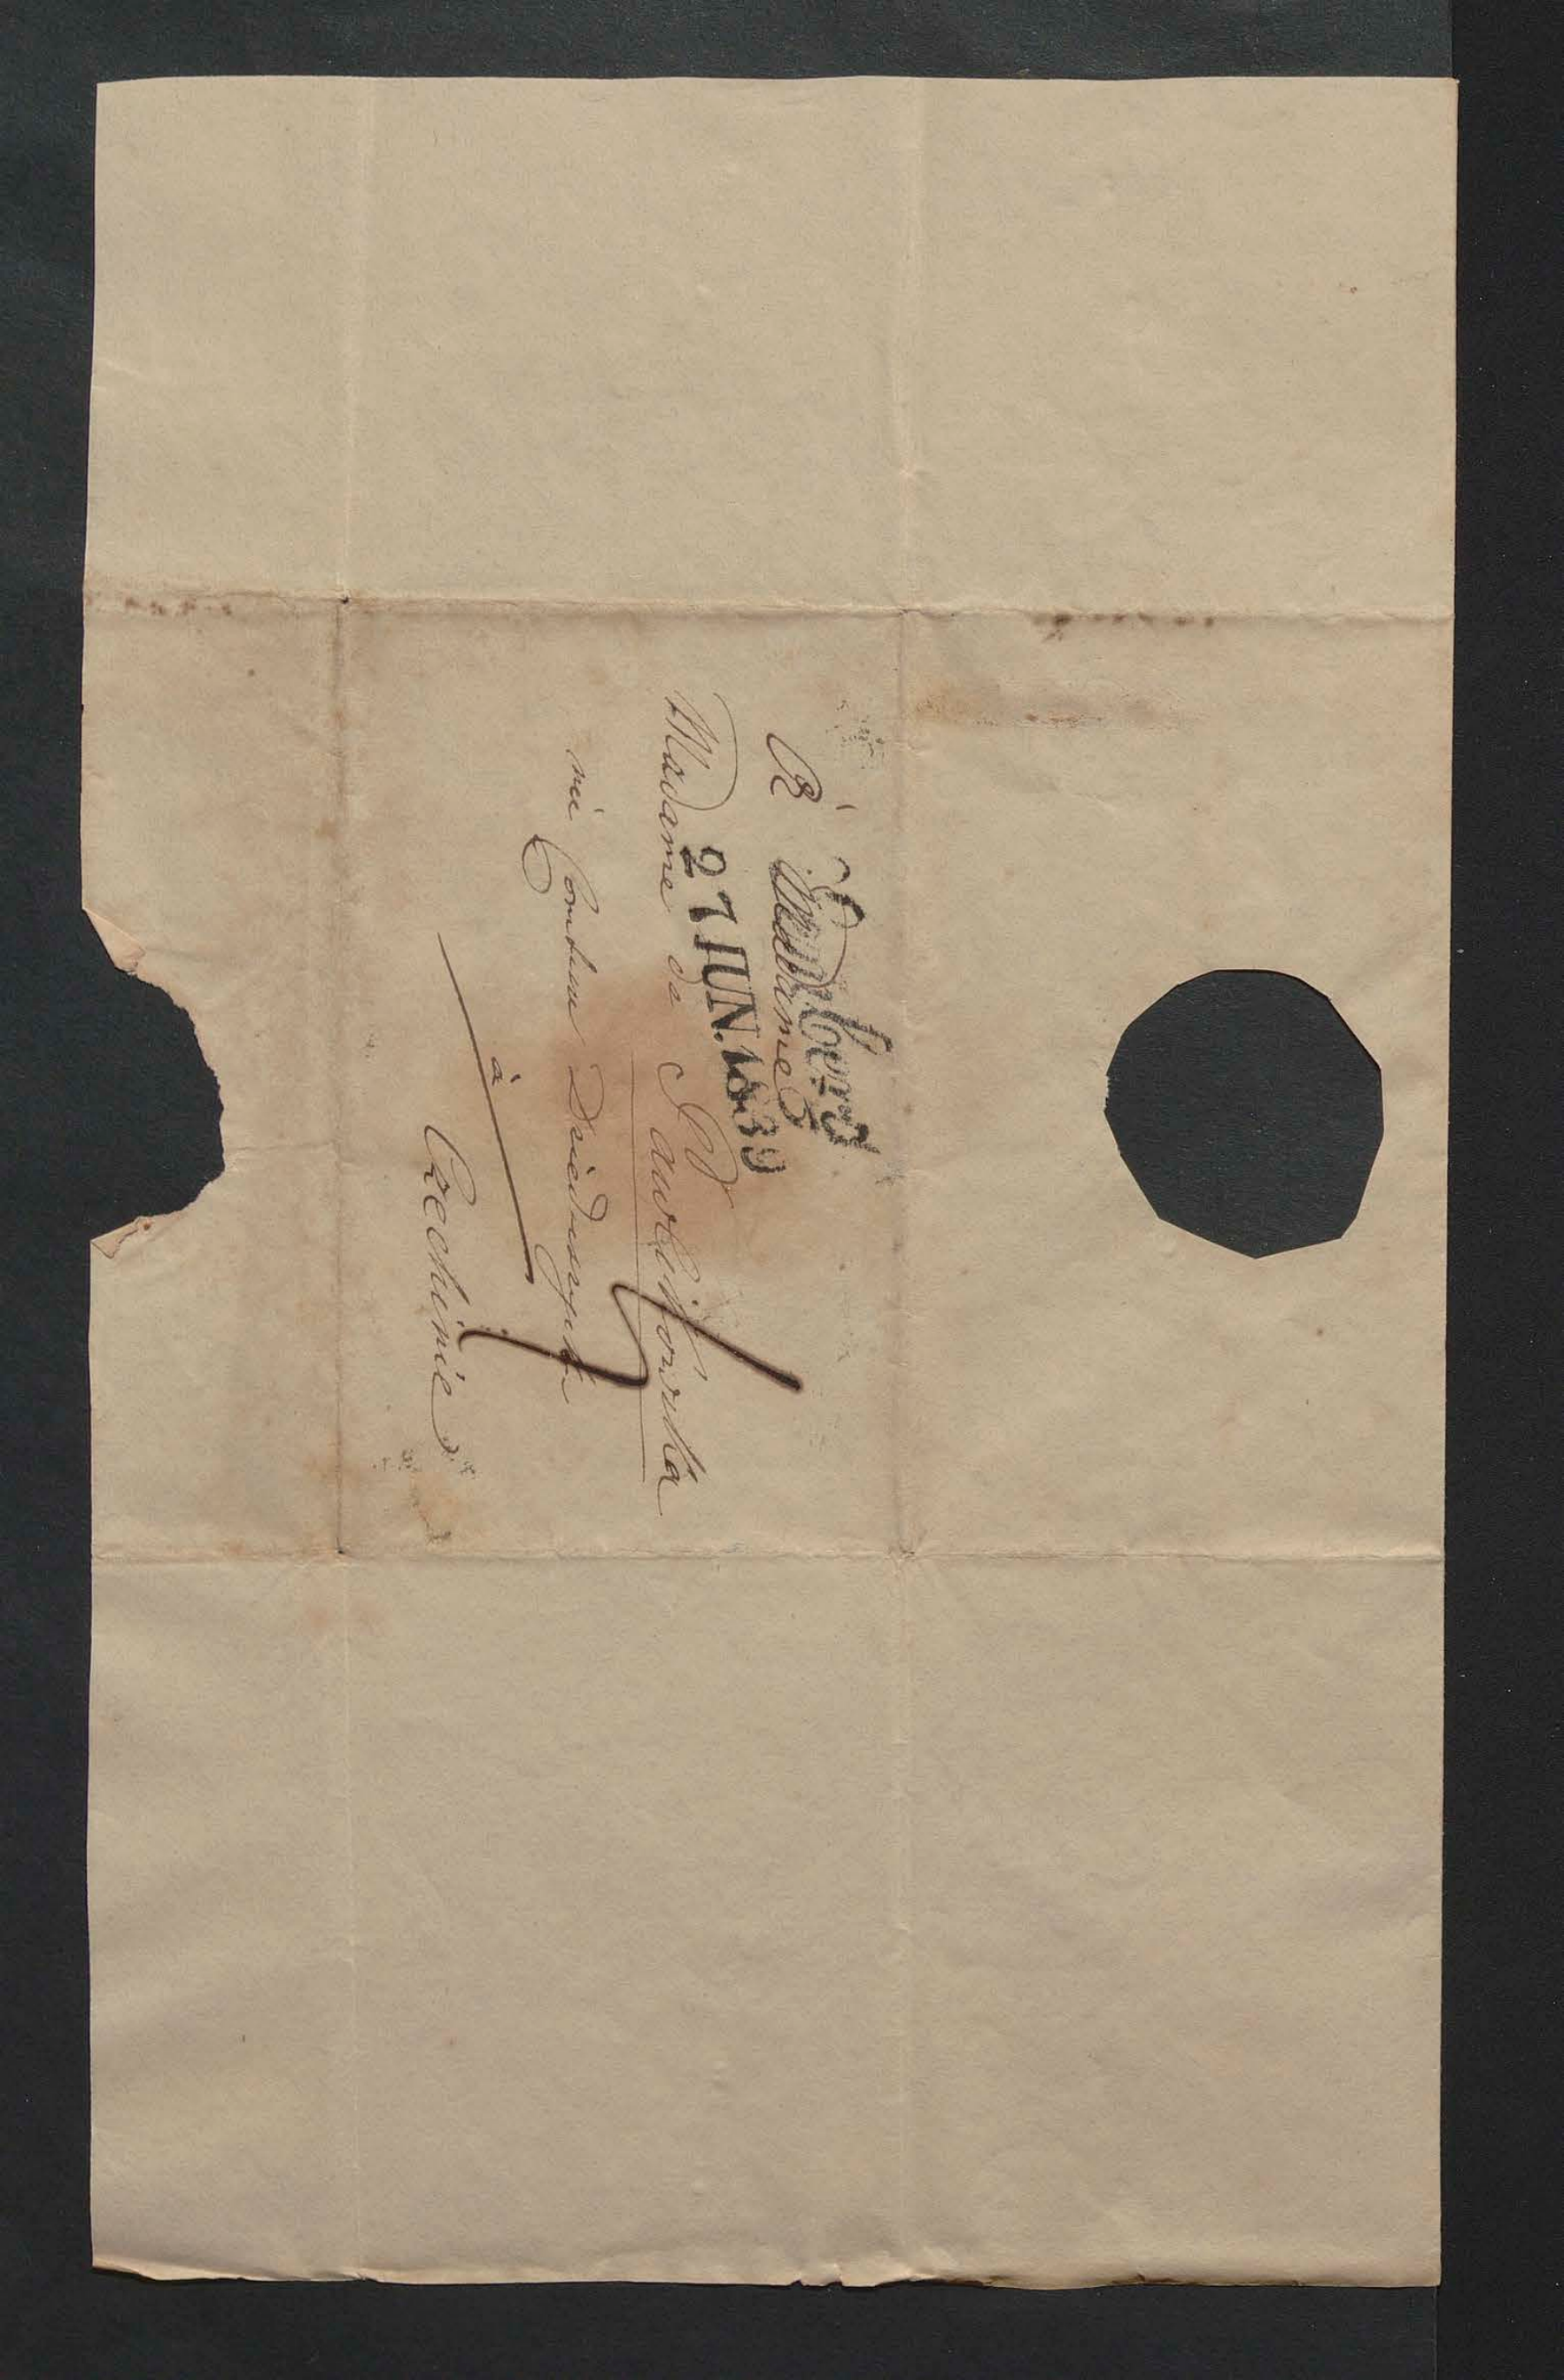 À Madame
Lemberg
27 JUN. 1839
Madame de Pawlikowska
née Comtesse Dzieduszycka
à
Czechinie